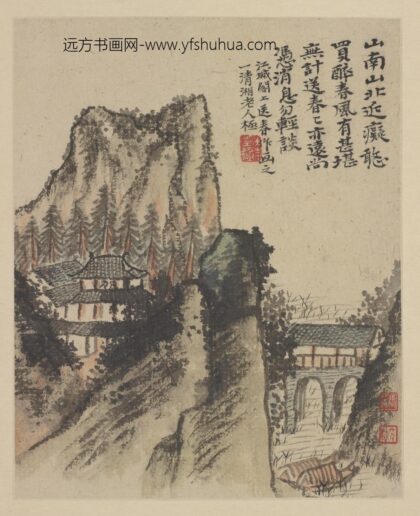 远方书画网-www.yfshuhua.com
山南山北近癡憨
買醉春風有甚堪
無計送春〻亦遠尚
憑消息勿輕談
江城閣上送春作画之
一清湘老人極